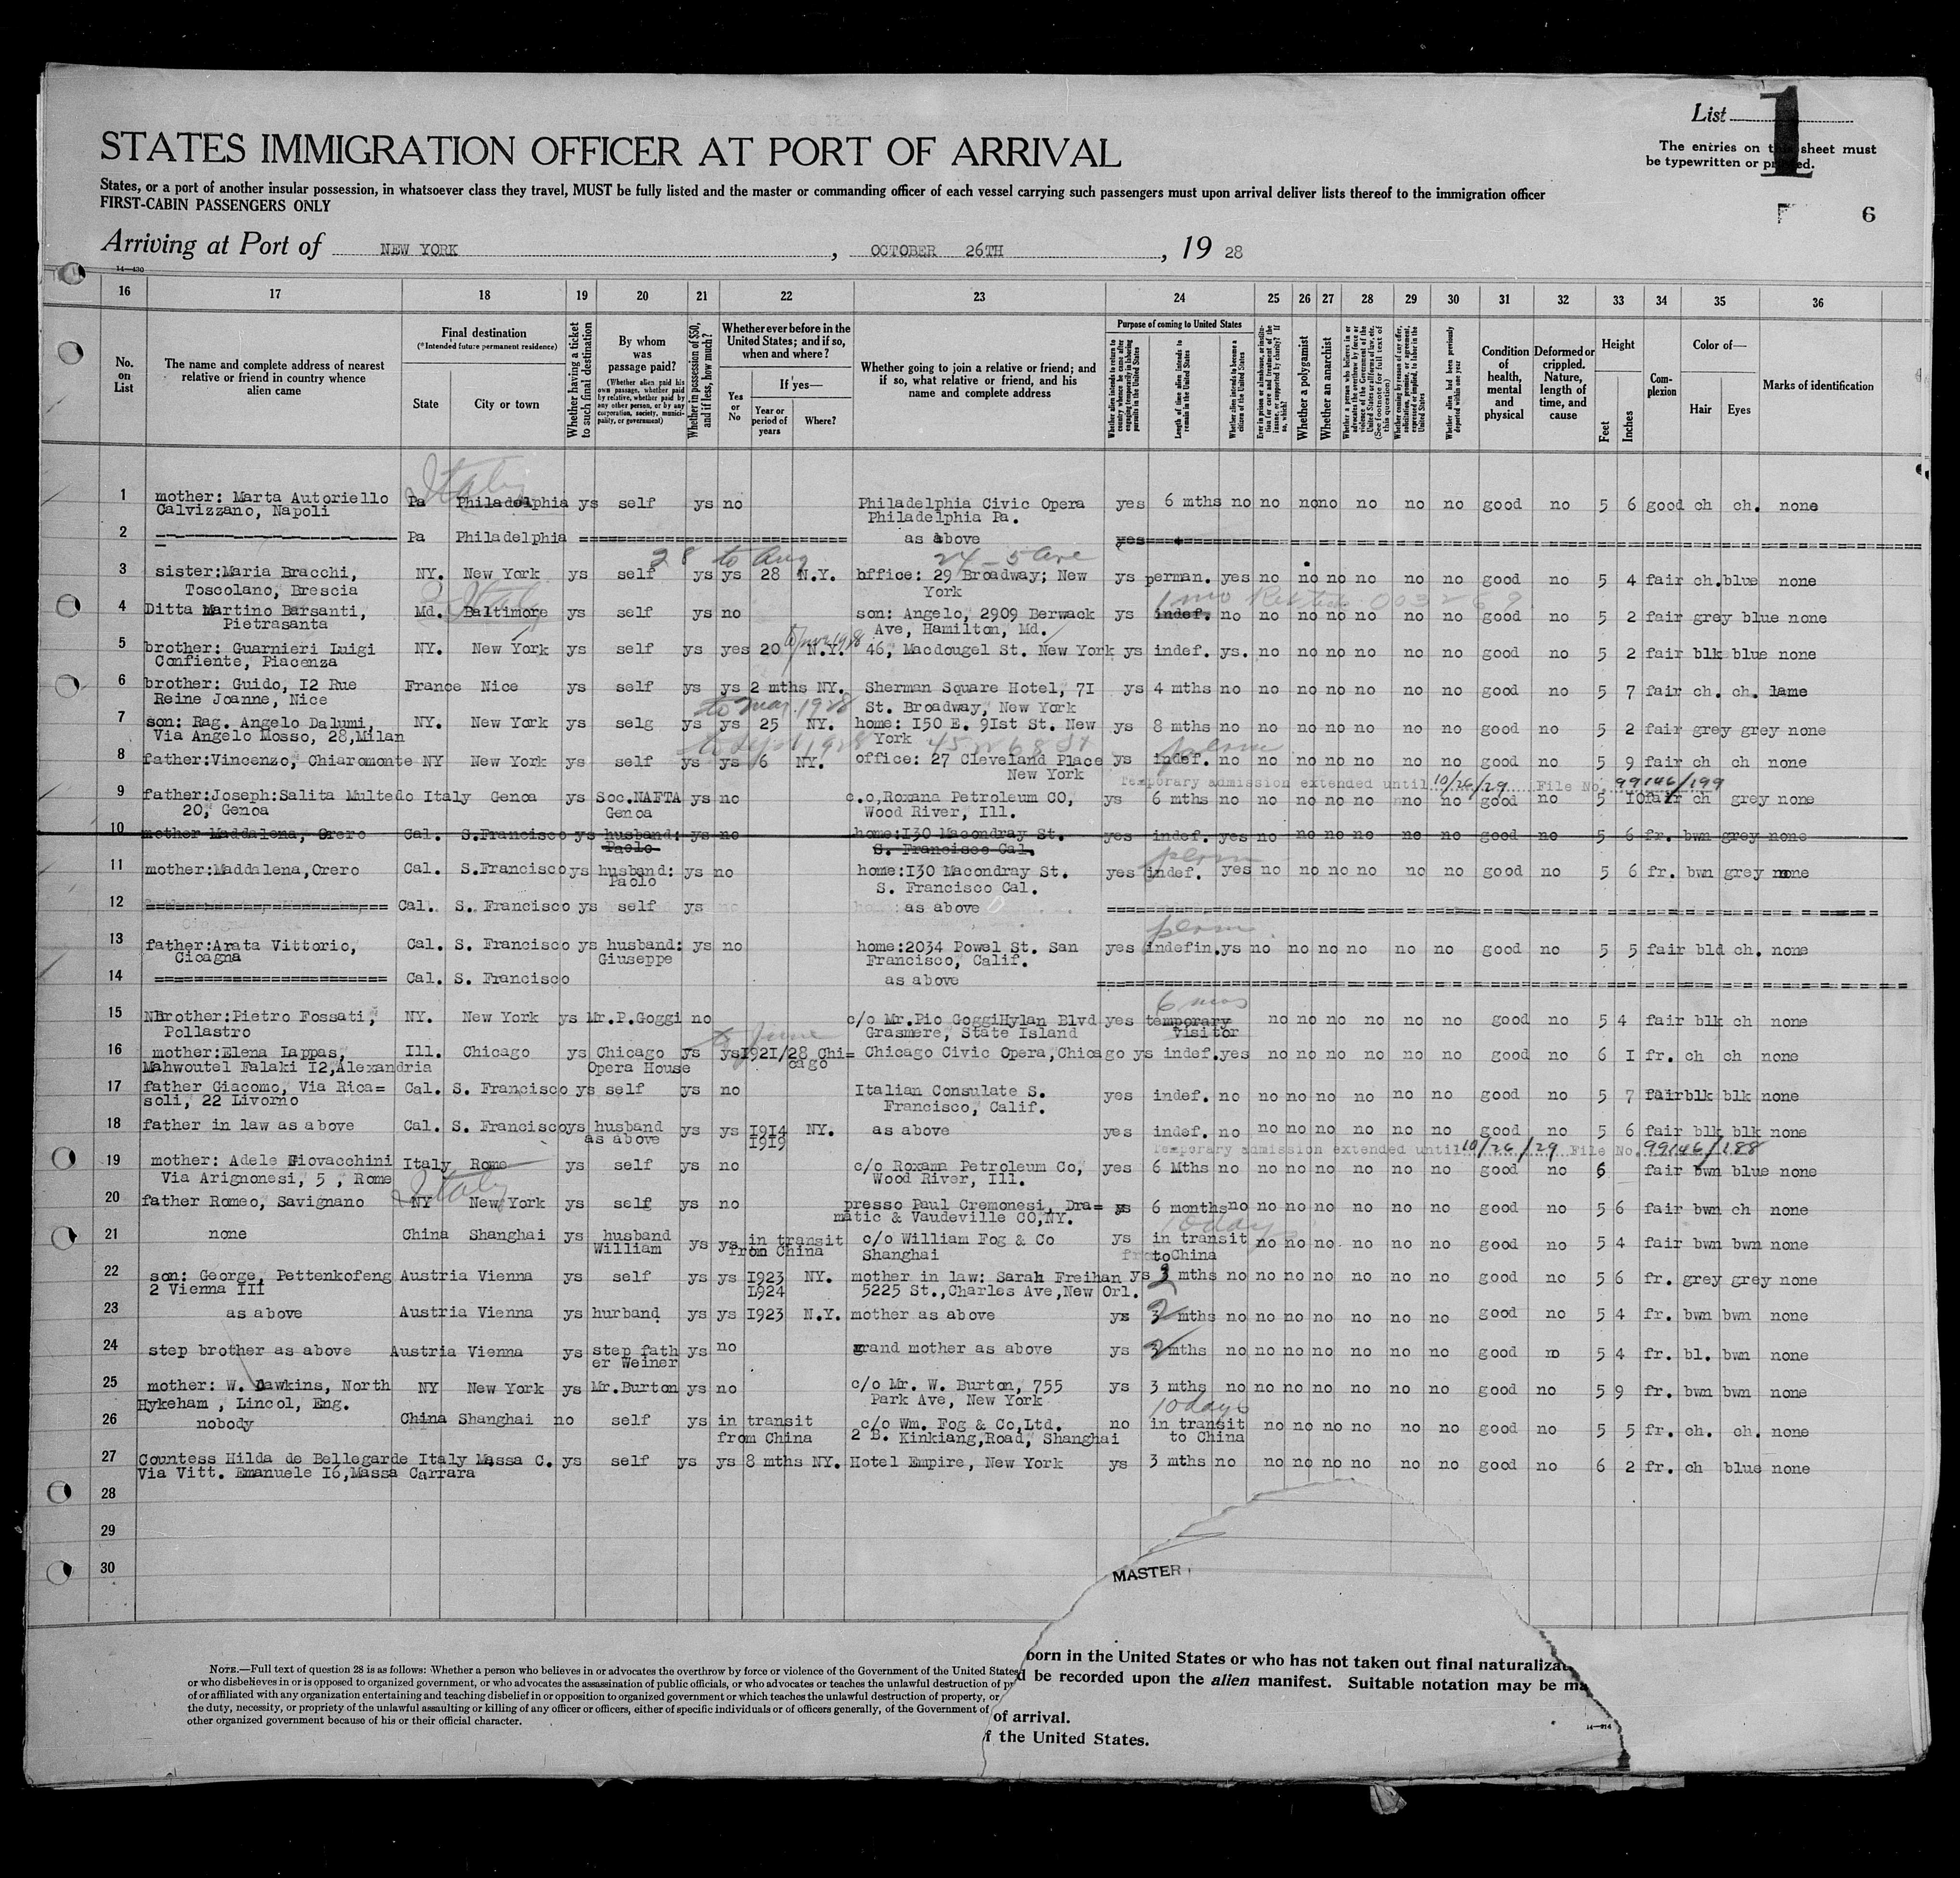 List 1
The entries on this sheet must
be typewritten or printed.
STATES IMMIGRATION OFFICER AT PORT OF ARRIVAL
States, or a port of another insular possession, in whatsoever class they travel, MUST be fully listed and the master or commanding officer of each vessel carrying such passengers must upon arrival deliver lists thereof to the immigration officer
FIRST-CABIN PASSENGERS ONLY
6
Arriving at Port of NEW YORK, OCTOBER 26TH, 19 28
14—430
16 17 18 19 20 21 22 23 24 25 26 27 28 29 30 31 32 33 34 35 36
No. on List
The name and complete address of nearest relative or friend in country whence alien came
Final destination
(*Intended future permanent residence)
State
City or town
Whether having a ticket to such final destination
By whom was passage paid?
(Whether alien paid his own passage, whether paid by relative, whether paid by any other person, or by any corporation, society, municipality, or government)
Whether in possession of $50, and if less, how much?
Whether ever before in the United States; and if so, when and where?
Yes or No
If yes—
Year or period of years
Where?
Whether going to join a relative or friend; and if so, what relative or friend, and his name and complete address
Purpose of coming to United States
Whether alien intends to return to country whence he came after engaging temporarily in laboring pursuits in the United States
Length of time alien intends to remain in the United States
Whether alien intends to become a citizen of the United States
Ever in prison or almshouse, or institution for care and treatment of the insane, or supported by charity? If so, which?
Whether a polygamist
Whether an anarchist
Whether a person who believes in or advocates the overthrow by force or violence of the Government of the United States or all forms of law, etc. (See footnote for full text of this question)
Whether coming by reason of any offer, solicitation, promise, or agreement, expressed or implied, to labor in the United States
Whether alien had been previously deported within one year
Condition of health, mental and physical
Deformed or crippled. Nature, length of time, and cause
Height
Feet
Inches
Complexion
Color of—
Hair
Eyes
Marks of identification
Italy
1 mother: Marta Autoriello Pa Philadelphia ys self ys no Philadelphia Civic Opera yes 6 mths no no no no no no no good no 5 6 good ch ch. none
Calvizzano, Napoli Philadelphia Pa.
2 Pa Philadelphia as above yes
28 to Aug 24 - 5 Ave
3 sister:Maria Bracchi, NY. New York ys self ys ys 28 N.Y. office: 29 Broadway; New ys perman. yes no no no no no no good no 5 4 fair ch. blue none
Toscolano, Brescia York
1 mo
4 Ditta Martino Barsanti, Md. Baltimore ys self ys no son: Angelo, 2909 Berwack ys indef. no no no no no no no good no 5 2 fair grey blue none
Pietrasanta Ave, Hamilton, Md.
5 brother: Guarnieri Luigi NY. New York ys self ys yes 20 N.Y. 46, Macdougel St. New York ys indef. ys. no no no no no no good no 5 2 fair blk blue none
Confiente, Piacenza
6 brother: Guido, I2 Rue France Nice ys self ys ys 2 mths NY. Sherman Square Hotel, 7I ys 4 mths no no no no no no no good no 5 7 fair ch. ch. lame
Reine Joanne, Nice St. Broadway, New York
to Mar. 1928
7 son: Rag. Angelo Dalumi, NY. New York ys selg ys ys 25 NY. home: I50 E. 9Ist St. New ys 8 mths no no no no no no no good no 5 2 fair grey grey none
Via Angelo Mosso, 28,Milan York
to Sept 1928 perm
8 father:Vincenzo, Chiaromonte NY New York ys self ys ys 6 NY. office: 27 Cleveland Place ys indef. no no no no no no no good no 5 9 fair ch ch none
New York
Temporary admission extended until 10/26/29 File No. 99146/199
9 father:Joseph:Salita Multedo Italy Genoa ys Soc.NAFTA ys no c.o,Roxana Petroleum CO, ys 6 mths no no no no no no no good no 5 IO fair ch grey none
20, Genoa Genoa Wood River, Ill.
10 mother Maddalena, Orero Cal. S.Francisco ys husband: ys no home:I30 Macondray St. yes indef. yes no no no no no no good no 5 6 fr. bwn grey none
Paolo S. Francisco Cal.
perm
11 mother:Maddalena,Orero Cal. S.Francisco ys husband: ys no home:I30 Macondray St. yes indef. yes no no no no no no good no 5 6 fr. bwn grey none
Paolo S. Francisco Cal.
12 Cal. S. Francisco ys self ys as above
perm
13 father:Arata Vittorio, Cal. S. Francisco ys husband: ys no home:2034 Powel St. San yes indefin. ys no no no no no no good no 5 5 fair bld ch. none
Cicagna Giuseppe Francisco, Calif.
14 Cal. S. Francisco as above
6 mos
15 Brother:Pietro Fossati, NY. New York ys Mr.P.Goggi no c/o Mr.Pio GoggiHylan Blvd yes temporary no no no no no no good no 5 4 fair blk ch none
Pollastro Grasmere, State Island visitor
to June
16 mother:Elena Iappas, Ill. Chicago ys Chicago ys ys I92I/28 Chi= Chicago Civic Opera,Chicago ys indef. yes no no no no no no good no 6 I fr. ch ch none
Mahwoutel Falaki I2,Alexandria Opera House cago
17 father Giacomo, Via Rica= Cal. S. Francisco ys self ys no Italian Consulate S. yes indef. no no no no no no no good no 5 7 fair blk blk none
soli, 22 Livorno Francisco, Calif.
18 father in law as above Cal. S. Francisco ys husband ys ys I9I4 NY. as above yes indef. no no no no no no no good no 5 6 fair blk blk none
as above I9I9
Temporary admission extended until 10/26/29 File No. 99146/188
19 mother: Adele Fiovacchini Italy Rome ys self ys no c/o Roxama Petroleum Co, yes 6 Mths no no no no no no no good no 6 fair bwn blue none
Via Arignonesi, 5 , Rome Wood River, Ill.
Italy
20 father Romeo, Savignano NY New York ys self ys no presso Paul Cremonesi, Dra= ys 6 months no no no no no no no good no 5 6 fair bwn ch none
matic & Vaudeville CO,NY.
10 days
21 none China Shanghai ys husband ys ys in transit c/o William Fog & Co ys in transit no no no no no no good no 5 4 fair bwn bwn none
William from China Shanghai to China
22 son: George, Pettenkofeng Austria Vienna ys self ys ys I923 NY. mother in law: Sarah Freihan ys 3 mths no no no no no no no good no 5 6 fr. grey grey none
2 Vienna III I924 5225 St.,Charles Ave,New Orl. 2
23 as above Austria Vienna ys hurband ys ys I923 N.Y. mother as above ys 3 mths no no no no no no no good no 5 4 fr. bwn bwn none
24 step brother as above Austria Vienna ys step fath ys no grand mother as above ys 3 mths no no no no no no no good no 5 4 fr. bl. bwn none
er Weiner
25 mother: W. Dawkins, North NY New York ys Mr.Burton ys no c/o Mr. W. Burton, 755 ys 3 mths no no no no no no no good no 5 9 fr. bwn bwn none
Hykeham , Lincol, Eng. Park Ave, New York
10 days
26 nobody China Shanghai no self ys in transit c/o Wm. Fog & Co,Ltd. no in transit no no no no no no good no 5 5 fr. ch. ch. none
from China 2 B. Kinkiang,Road, Shanghai to China
27 Countess Hilda de Bellegarde Italy Massa C. ys self ys ys 8 mths NY. Hotel Empire, New York ys 3 mths no no no no no no no good no 6 2 fr. ch blue none
Via Vitt. Emanuele I6,Massa Carrara
28
29
30
MASTER
NOTE.—Full text of question 28 is as follows: Whether a person who believes in or advocates the overthrow by force or violence of the Government of the United States
or who disbelieves in or is opposed to organized government, or who advocates the assassination of public officials, or who advocates or teaches the unlawful destruction of
of or affiliated with any organization entertaining and teaching disbelief in or opposition to organized government or which teaches the unlawful destruction of property, or
the duty, necessity, or propriety of the unlawful assaulting or killing of any officer or officers, either of specific individuals or of officers generally, of the Government of
other organized government because of his or their official character.
born in the United States or who has not taken out final
be recorded upon the alien manifest. Suitable notation may be
of arrival.
the United States.
14—214